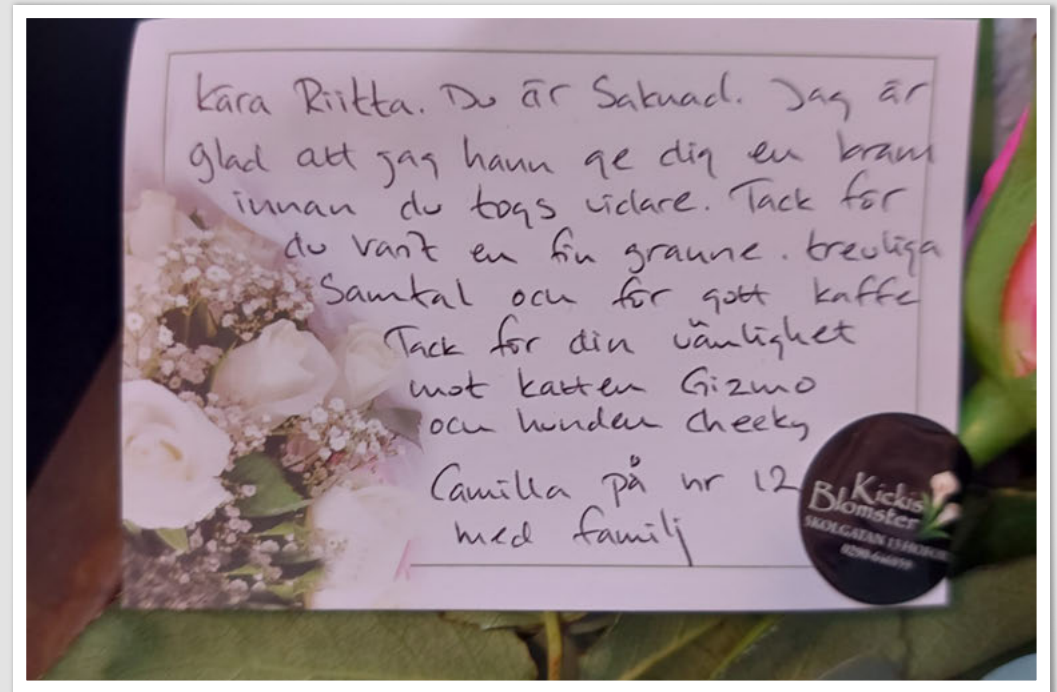 Kära Riitta. Du är Saknad. Jag är
glad att jag hann ge dig en kram
innan du togs vidare. Tack för
du varit en fin granne. trevliga
Samtal och för gott kaffe
Tack för din vänlighet
mot katten Gizmo
och hunden Cheeky
Camilla på nr 12
med familj
Kickis
Blomster
SKOLGATAN 15 HOFORS